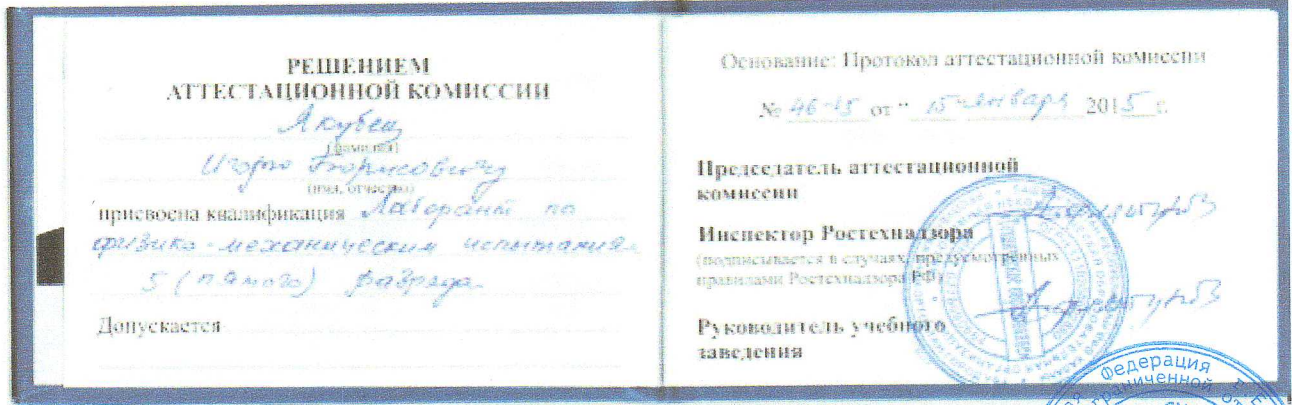 РЕШЕНИЕМ
АТТЕСТАЦИОННОЙ КОМИССИИ
Якубец
(фамилия)
Игорю Борисовичу
(имя, отчество)
присвоена квалификация Лаборант по
физико-механическим испытаниям
5 (пятого) разряда
Допускается
Основание: Протокол аттестационной комиссии
№ 46-15 от " 15 " января 2015 г.
Председатель аттестационной
комиссии
Инспектор Ростехнадзора
(подписывается в случаях, предусмотренных
правилами Ростехнадзора РФ)
Руководитель учебного
заведения
Федерация